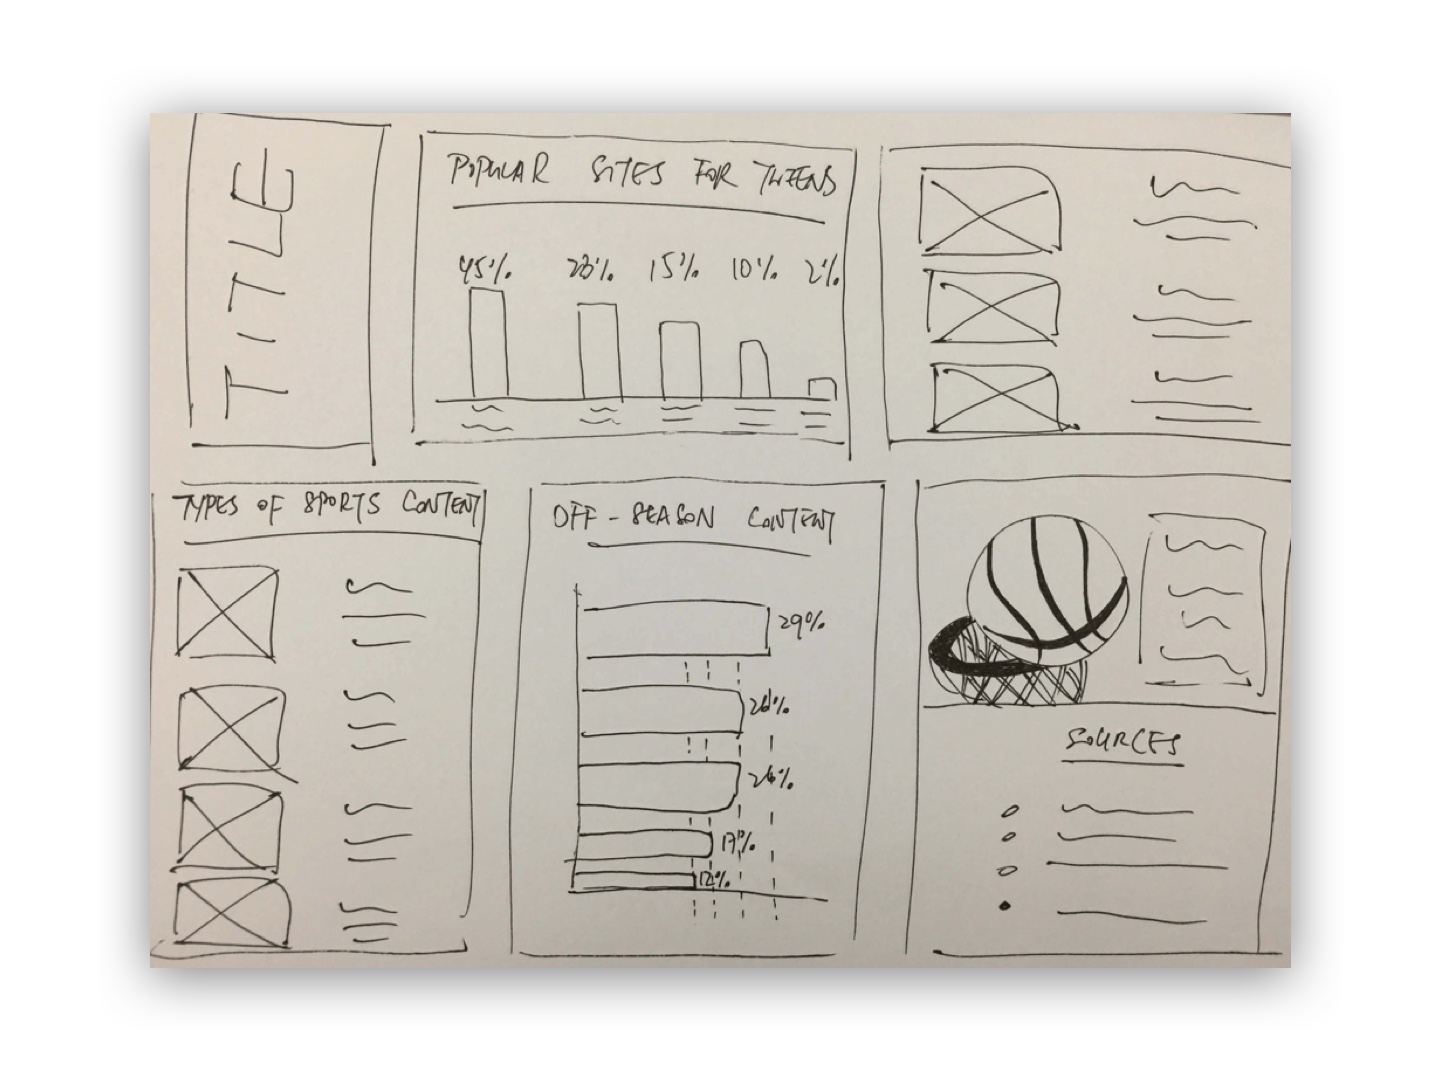 TITLE
POPULAR SITES FOR TWEENS
45% 28% 15% 10% 2%
TYPES OF SPORTS CONTENT
OFF-SEASON CONTENT
29%
26%
26%
17%
12%
SOURCES